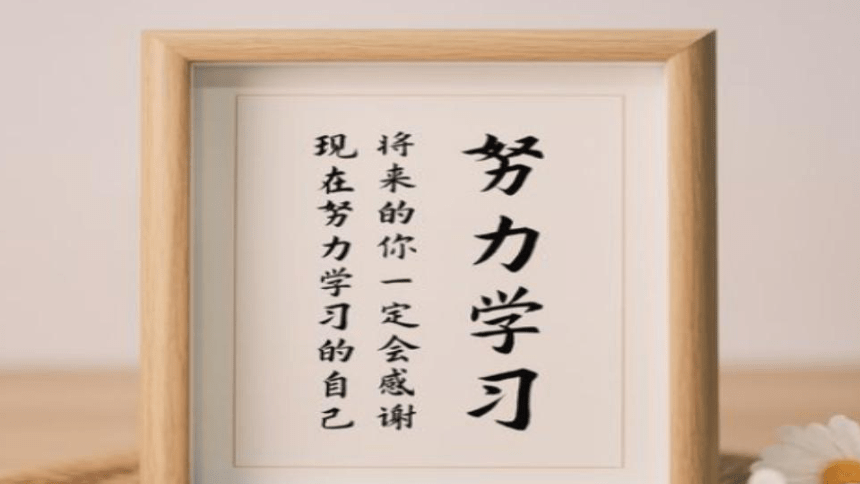 努力学习
将来的你一定会感谢
现在努力学习的自己